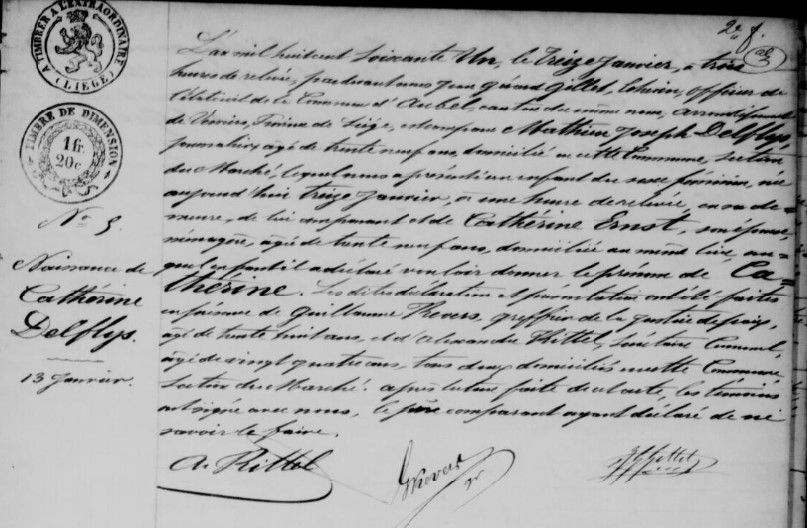 A TIMBRER A L'EXTRAORDINAIRE
(LIÈGE)
TIMBRE DE DIMENSION
1 fr
20 c
2e f.
No 5
Naissance de
Catherine
Delflys.
13 Janvier.
L'an mil huitcent soixante Un, le treize Janvier, à trois
heures de relevée, pardevant nous Jean Gérard Gillet, Echevin, officier de
l'état civil de la Commune d'Aubel, canton du même nom, arrondissement
de Verviers, Province de Liège, est comparu Mathieu Joseph Delflys,
journalier, agé de trente neuf ans, domicilié en cette Commune, section
du Marché, lequel nous a présenté un enfant du sexe féminin, née
aujourd'hui treize Janvier, à une heure de relevée, en sa de=
meure, de lui comparant et de Catherine Ernst, son épouse,
ménagère, agée de trente neuf ans, domiciliée au même lieu, au=
quel enfant il a déclaré vouloir donner le prénom de Ca=
therine. Les dites déclaration et présentation ont été faites
en présence de Guillaume Trevers, greffier de la Justice de paix,
agé de trente huit ans, et d'Alexandre Rittel, Secrétaire Communal,
agé de vingt quatre ans, tous deux domiciliés en cette Commune,
Section du Marché. après lecture faite de cet acte, les témoins
ont signé avec nous, le père comparant ayant déclaré de ne
savoir le faire.
A. Rittel